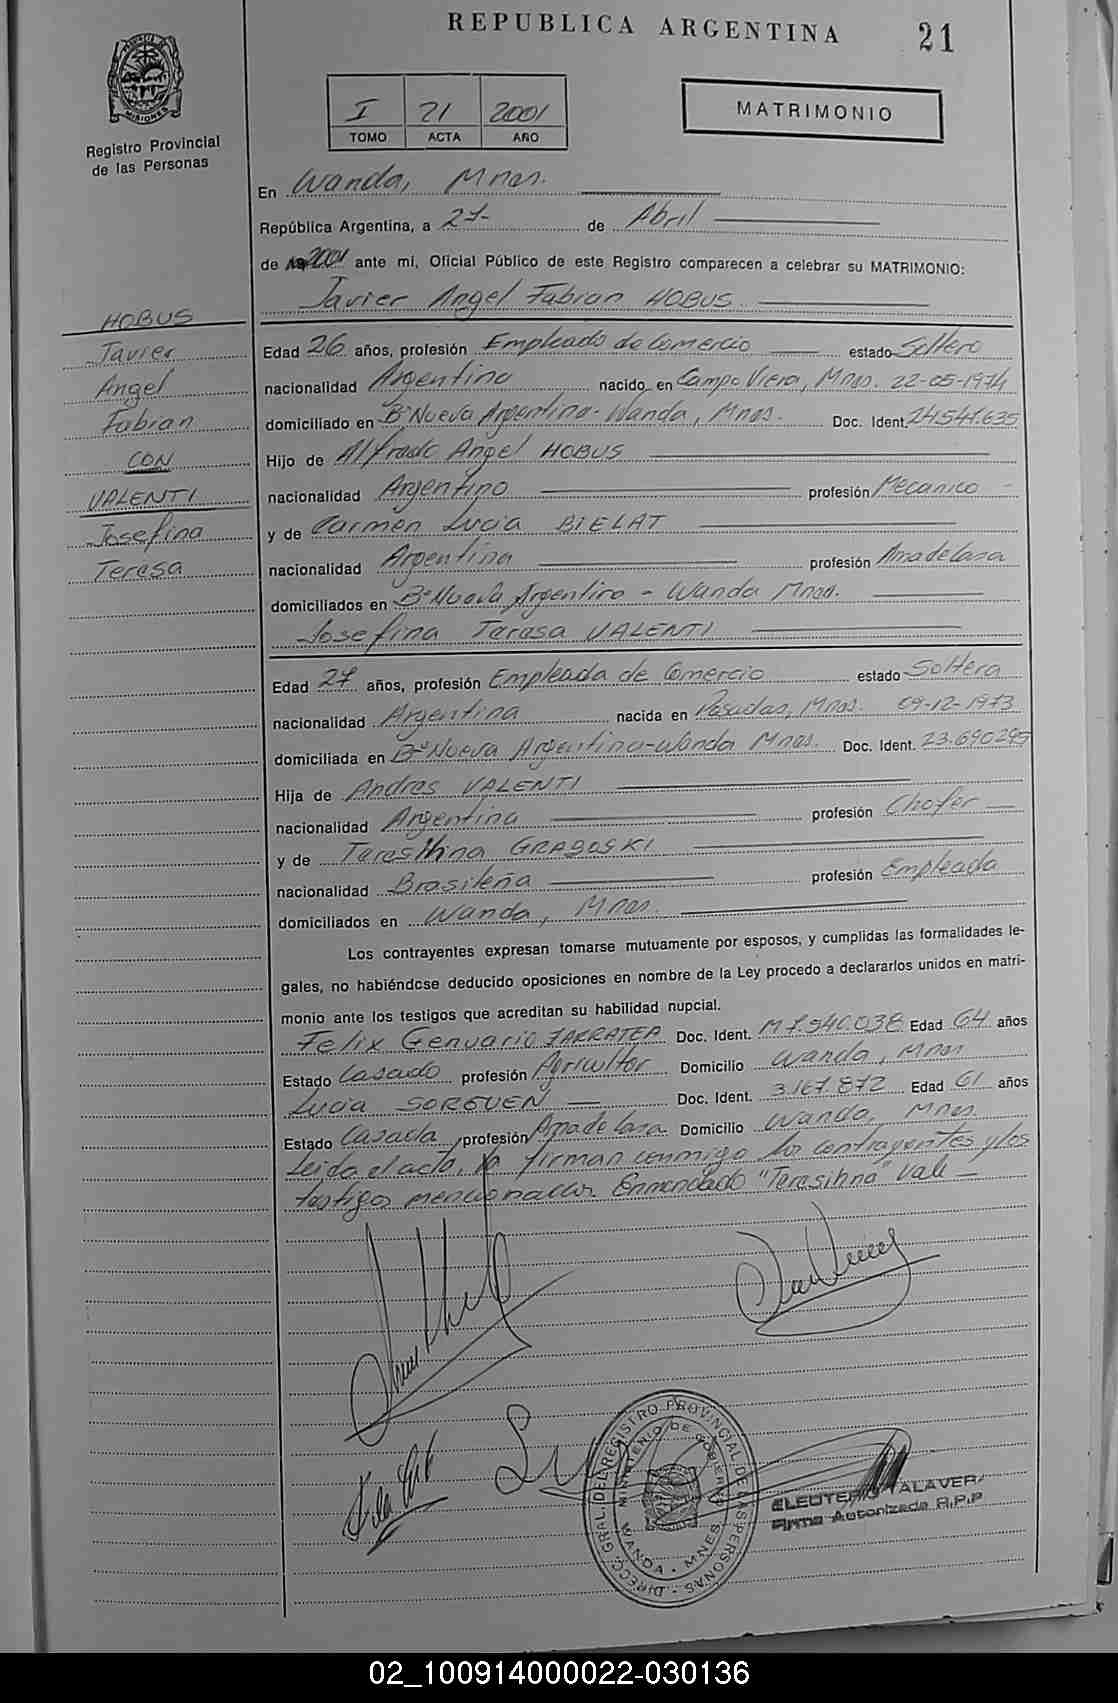 REPUBLICA ARGENTINA
21
PROVINCIA DE MISIONES
Registro Provincial
de las Personas
I 21 2001
TOMO ACTA AÑO
MATRIMONIO
En Wanda, Mnes.
República Argentina, a 27- de Abril
de 2001 ante mí, Oficial Público de este Registro comparecen a celebrar su MATRIMONIO:
Javier Angel Fabian HOBUS
HOBUS
Javier
Angel
Fabian
CON
VALENTI
Josefina
Teresa
Edad 26 años, profesión Empleado de Comercio estado Soltero
nacionalidad Argentina nacido en Campo Viera, Mnes. 22-05-1974
domiciliado en Bº Nueva Argentina - Wanda, Mnes. Doc. Ident. 24.541.635
Hijo de Alfredo Angel HOBUS
nacionalidad Argentino profesión Mecanico
y de Carmen Lucia BIELAT
nacionalidad Argentina profesión Ama de Casa
domiciliados en Bº Nueva Argentina - Wanda Mnes.
Josefina Teresa VALENTI
Edad 27 años, profesión Empleada de Comercio estado Soltera
nacionalidad Argentina nacida en Posadas, Mnes. 09-12-1973
domiciliada en Bº Nueva Argentina - Wanda Mnes. Doc. Ident. 23.690295
Hija de Andres VALENTI
nacionalidad Argentina profesión Chofer
y de Teresihna GRABOSKI
nacionalidad Brasileña profesión Empleada
domiciliados en Wanda, Mnes.
Los contrayentes expresan tomarse mutuamente por esposos, y cumplidas las formalidades le-
gales, no habiéndose deducido oposiciones en nombre de la Ley procedo a declararlos unidos en matri-
monio ante los testigos que acreditan su habilidad nupcial.
Felix Genuario ZARRATEA Doc. Ident. M 7.540.038 Edad 64 años
Estado Casado profesión Agricultor Domicilio Wanda, Mnes
Lucia SORGUEN Doc. Ident. 3.167.872 Edad 61 años
Estado Casada profesión Ama de Casa Domicilio Wanda, Mnes
Leida el acta, la firman conmigo, los contrayentes y los
testigos mencionados. Enmendado "Teresihna" Vale
DIRECC. GRAL. DEL REGISTRO PROVINCIAL DE LAS PERSONAS
MINISTERIO DE GOBIERNO
WANDA - MNES.
ELEUTERIO TALAVERA
Firma Autorizada R.P.P
02_100914000022-030136